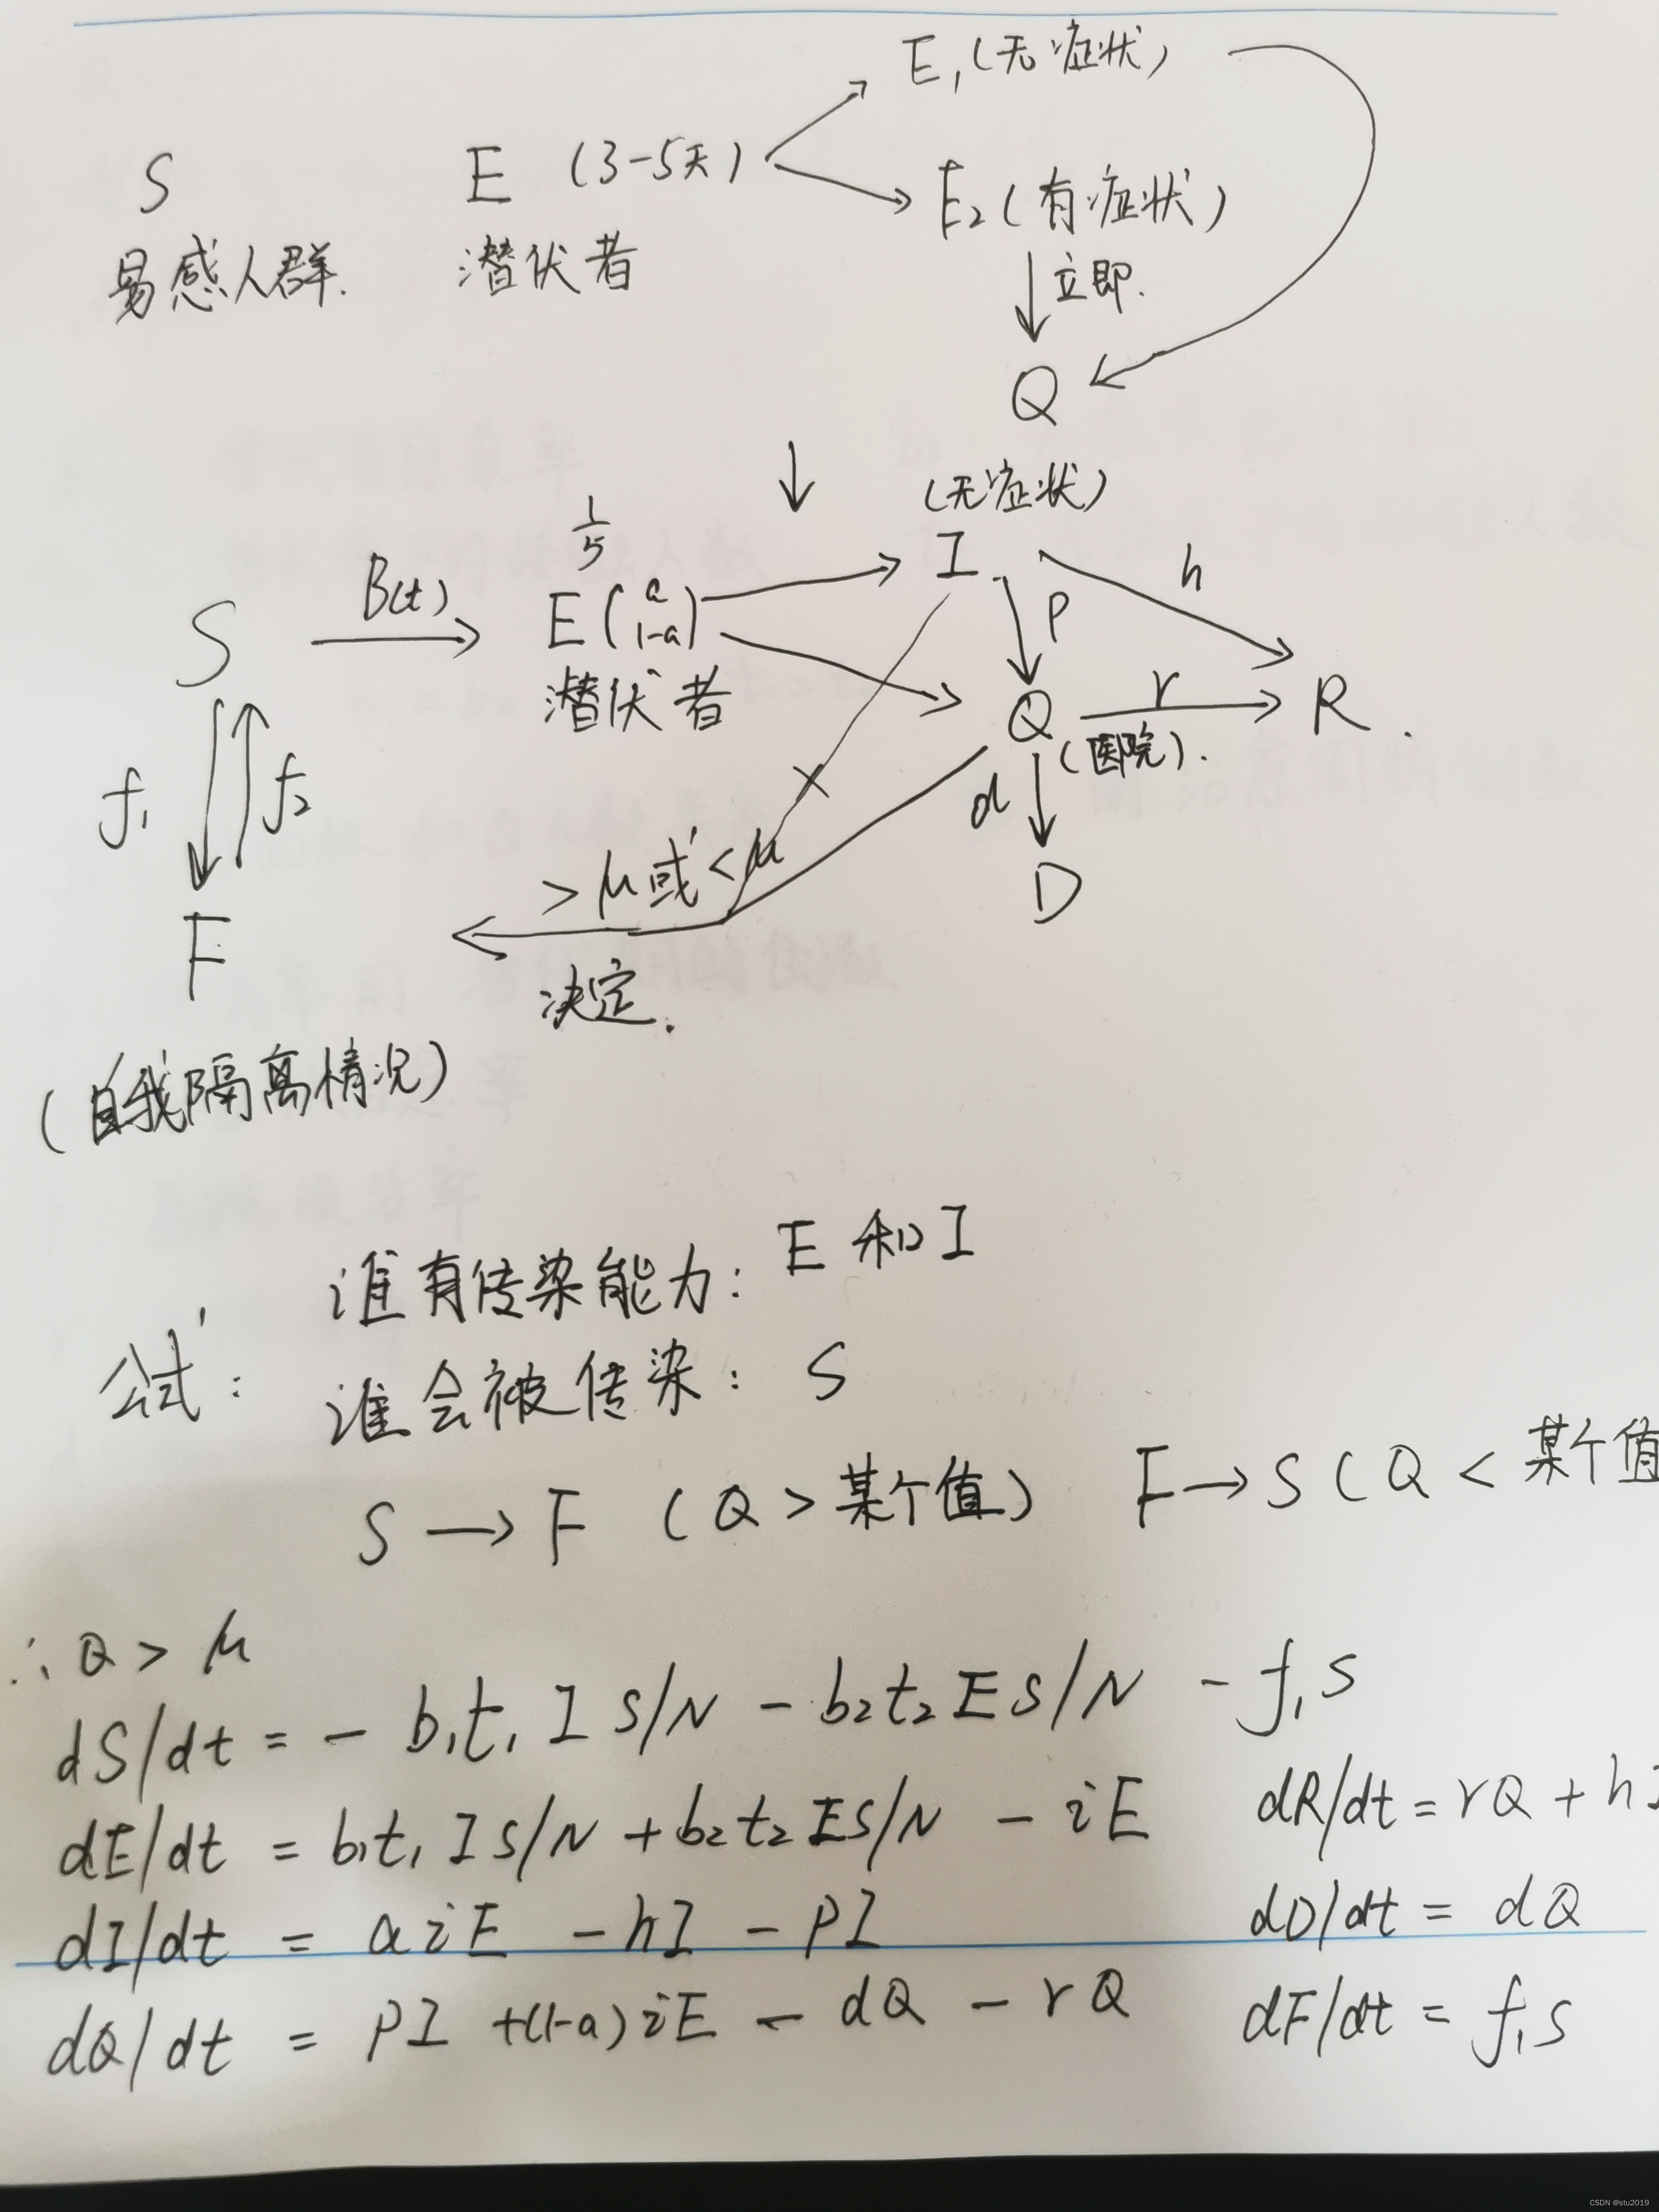 E₁(无症状)
S E (3-5天)
E₂(有症状)
易感人群. 潜伏者
立即.
Q
(无症状)
1/5
I
B(t)
h
S E(a 1-a) P
潜伏者
Q r R.
(医院).
f₁ f₂
d
>μ或<μ
D
F
决定.
(自我隔离情况)
谁有传染能力: E 和 I
公式:
谁会被传染: S
S → F (Q > 某个值) F → S (Q < 某个值
∴ Q > μ
dS/dt = - b₁t₁ I S/N - b₂t₂ E S/N - f₁S
dE/dt = b₁t₁ I S/N + b₂t₂ E S/N - iE dR/dt = rQ + hI
dI/dt = a i E - hI - PI dD/dt = dQ
dQ/dt = PI + (1-a) i E - dQ - rQ dF/dt = f₁S
CSDN @stu2019